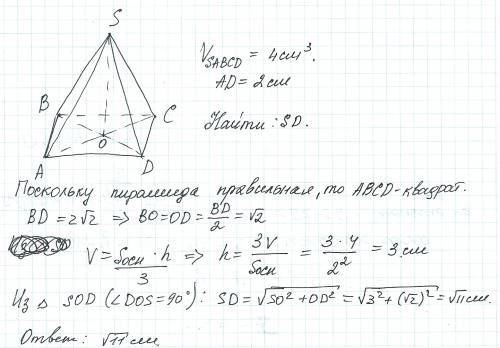 S
B
C
O
A
D
V_SABCD = 4см³.
AD = 2см
Найти: SD.
Поскольку пирамида правильная, то ABCD-квадрат.
BD = 2√2 ⇒ BO=OD= BD/2 = √2
V = Sосн·h/3 ⇒ h = 3V/Sосн = 3·4/2² = 3см
Из △ SOD (∠DOS=90°): SD = √(SO²+OD²) = √(3²+(√2)²) = √11 см.
Ответ: √11 см.